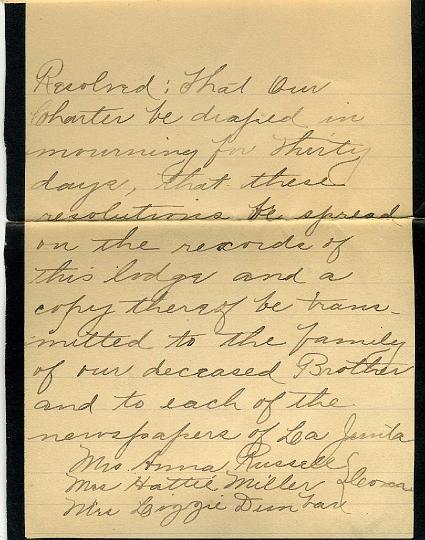 Resolved; That Our
Charter be draped in
mourning for Thirty
days, that these
resolutions be spread
on the records of
this lodge and a
copy thereof be trans-
mitted to the family
of our deceased Brother
and to each of the
newspapers of La Junta
Mrs Anna Russell
Mrs Hattie Miller } Com
Mrs Lizzie Dunbar